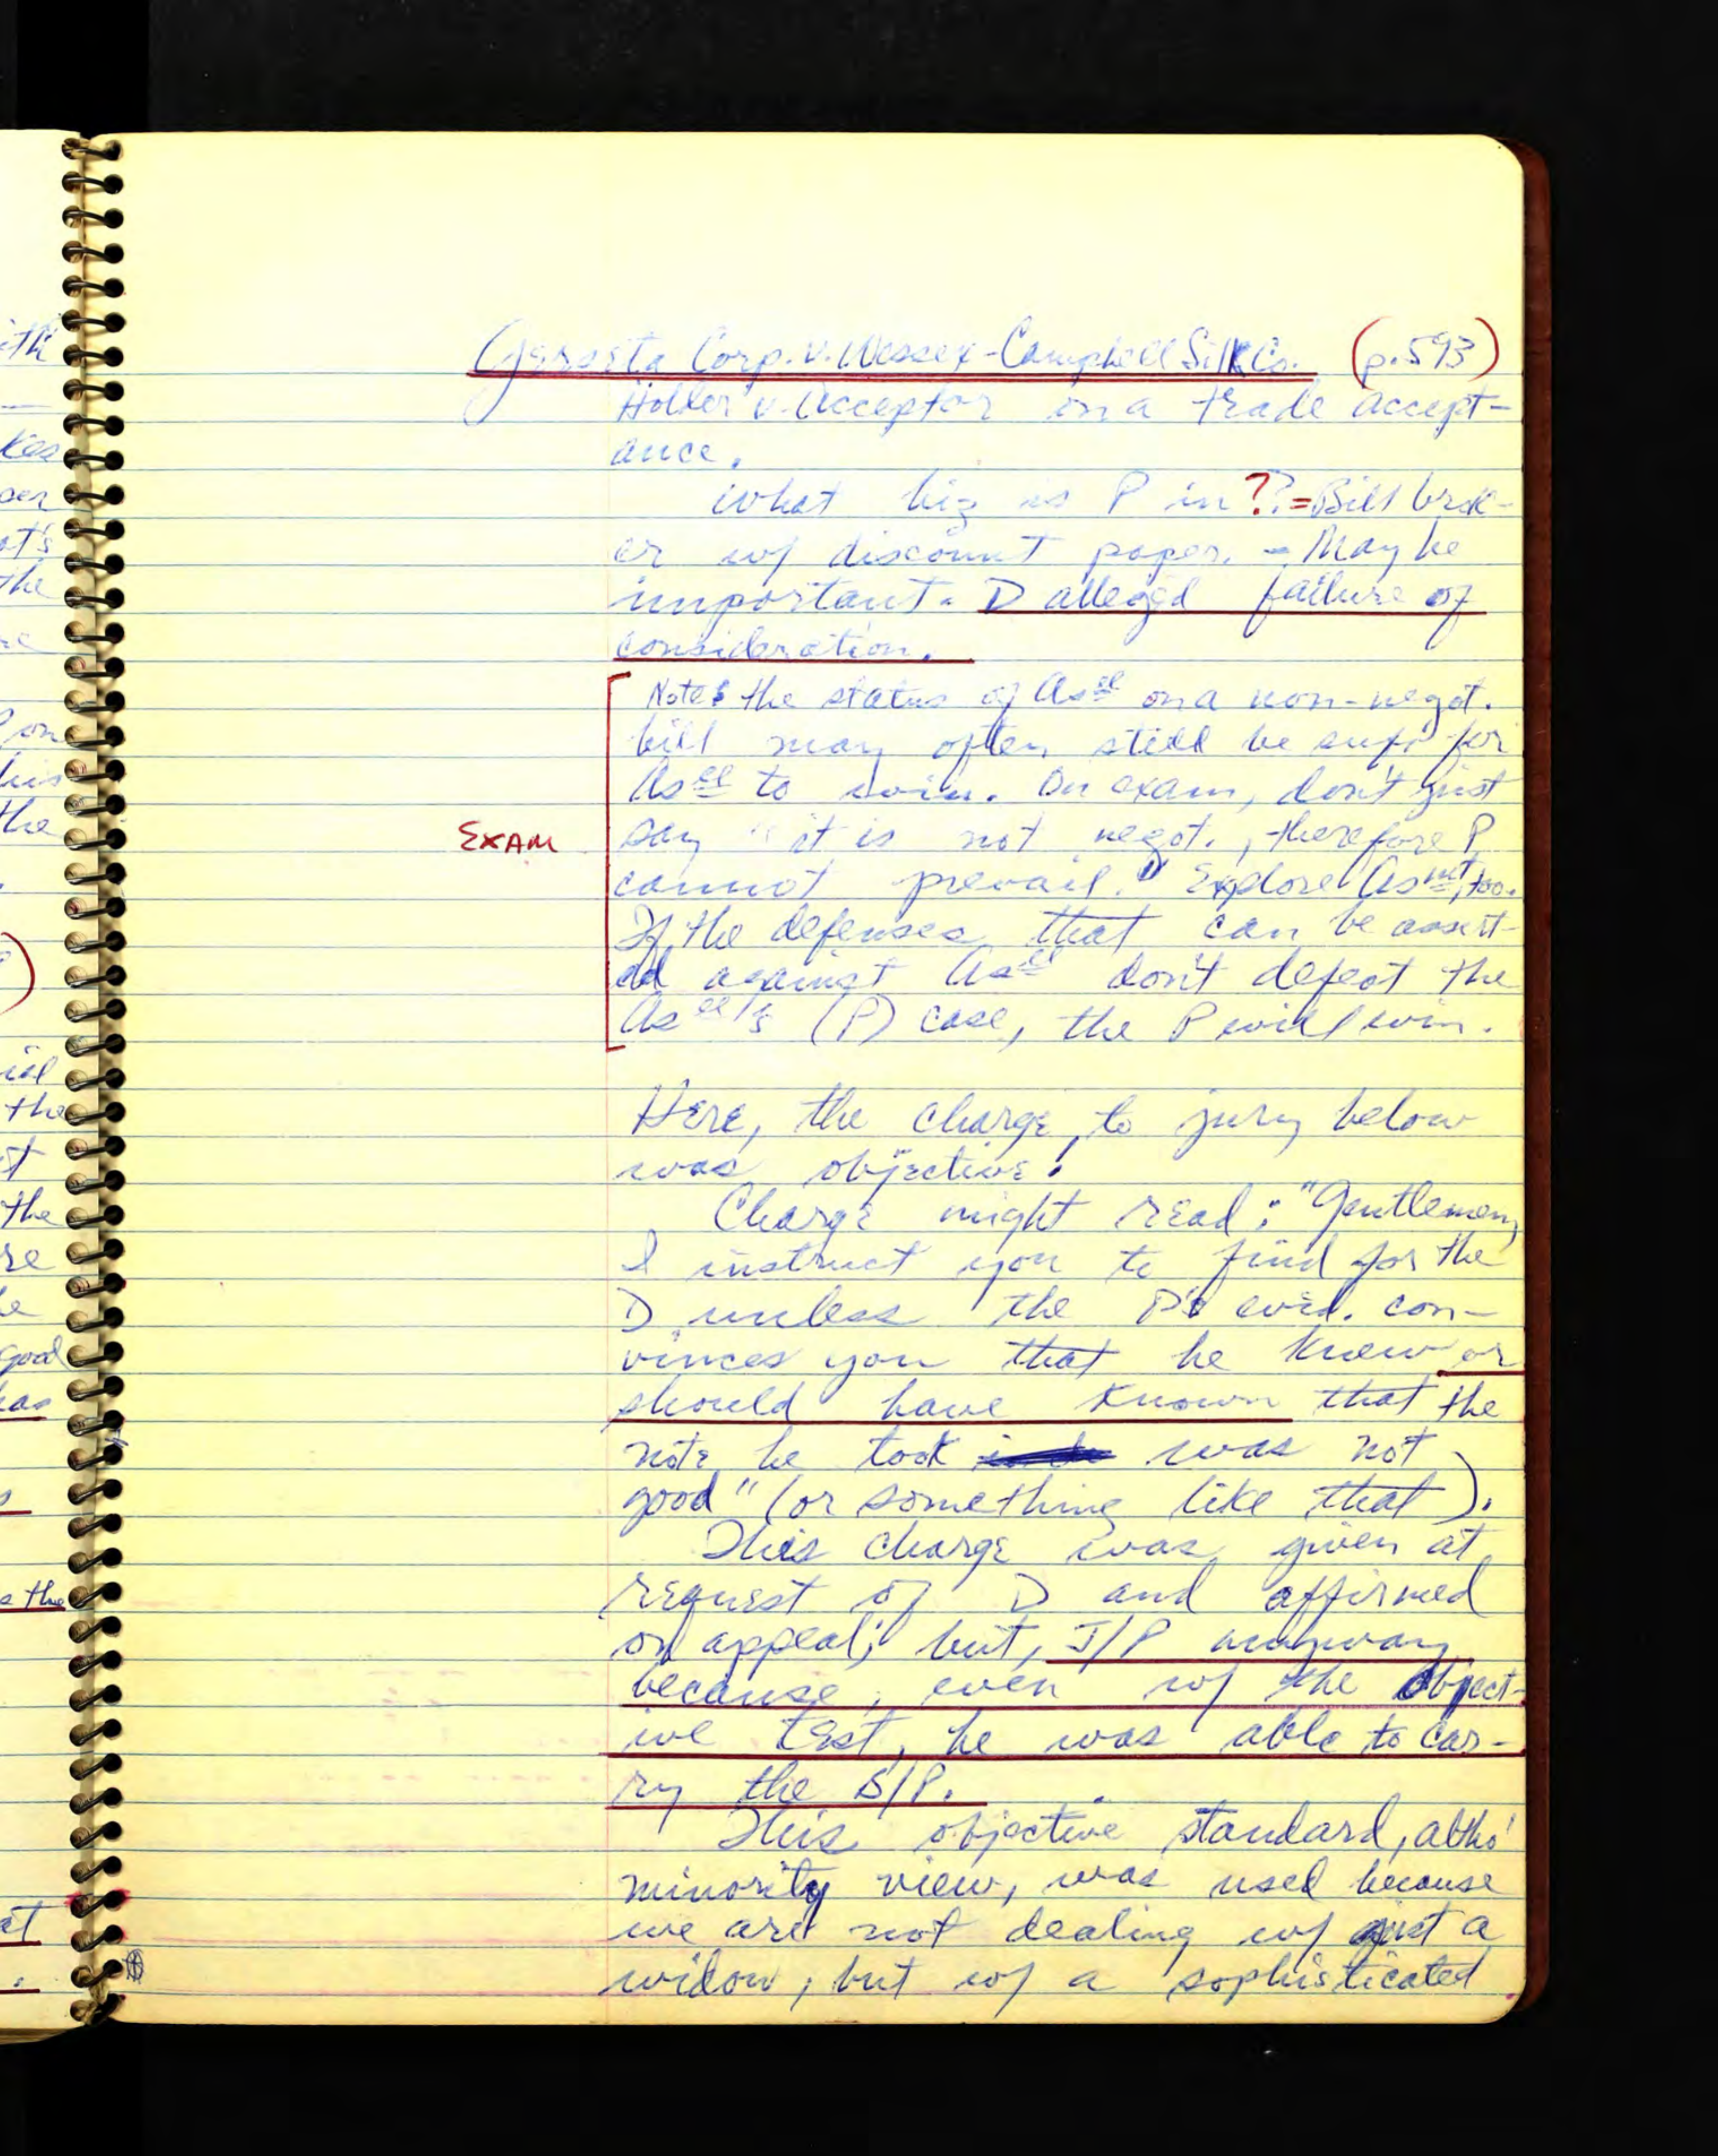 Gerseta Corp. v. Wessex-Campbell Silk Co. (p. 593)
Holder v. Acceptor on a trade accept-
ance.
What biz is P in?? = Bill brok-
er w/ discount paper. - May be
important. D alleged failure of
consideration.
Note: the status of Asee on a non-negot.
bill may often still be suff. for
Asee to win. On exam, don't just
EXAM say "it is not negot., therefore P
cannot prevail." Explore Asmt, too.
If the defenses that can be assert-
ed against Asee don't defeat the
Asee's (P) case, the P will win.
Here, the charge to jury below
was objective:
Charge might read: "Gentlemen,
I instruct you to find for the
D unless the P's evid. con-
vinces you that he knew or
should have known that the
note he took was not
good" (or something like that).
This charge was given at
request of D and affirmed
on appeal; but, J/P anyway
because, even w/ the object-
ive test, he was able to car-
ry the B/P.
This objective standard, altho'
minority view, was used because
we are not dealing w/ just a
widow, but w/ a sophisticated